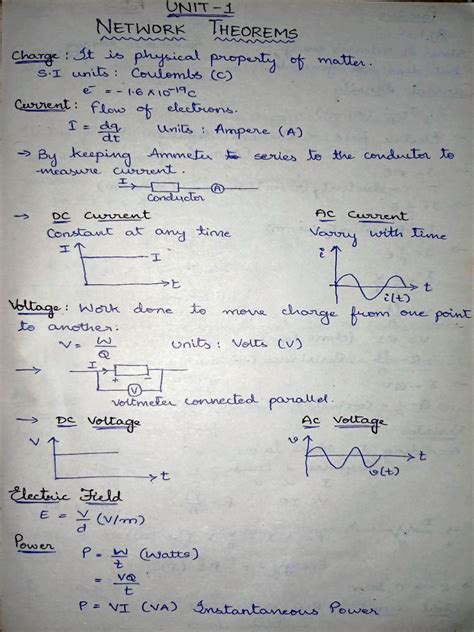 UNIT-1
NETWORK THEOREMS
Charge: It is physical property of matter.
S.I units: Coulombs (C)
e⁻ = -1.6 × 10⁻¹⁹C
Current: Flow of electrons.
I = dq/dt Units: Ampere (A)
→ By keeping Ammeter series to the conductor to
measure current.
I A
Conductor
→ DC Current AC Current
Constant at any time Varry with time
I I t i i(t) t
Voltage: Work done to move charge from one point
to another.
V = W/Q Units: Volts (V)
→ I + - V
Voltmeter connected parallel.
→ DC Voltage AC Voltage
V t v v(t) t
Electric Field
E = V/d (V/m)
Power P = W/t (Watts)
= VQ/t
P = VI (VA) Instantaneous Power